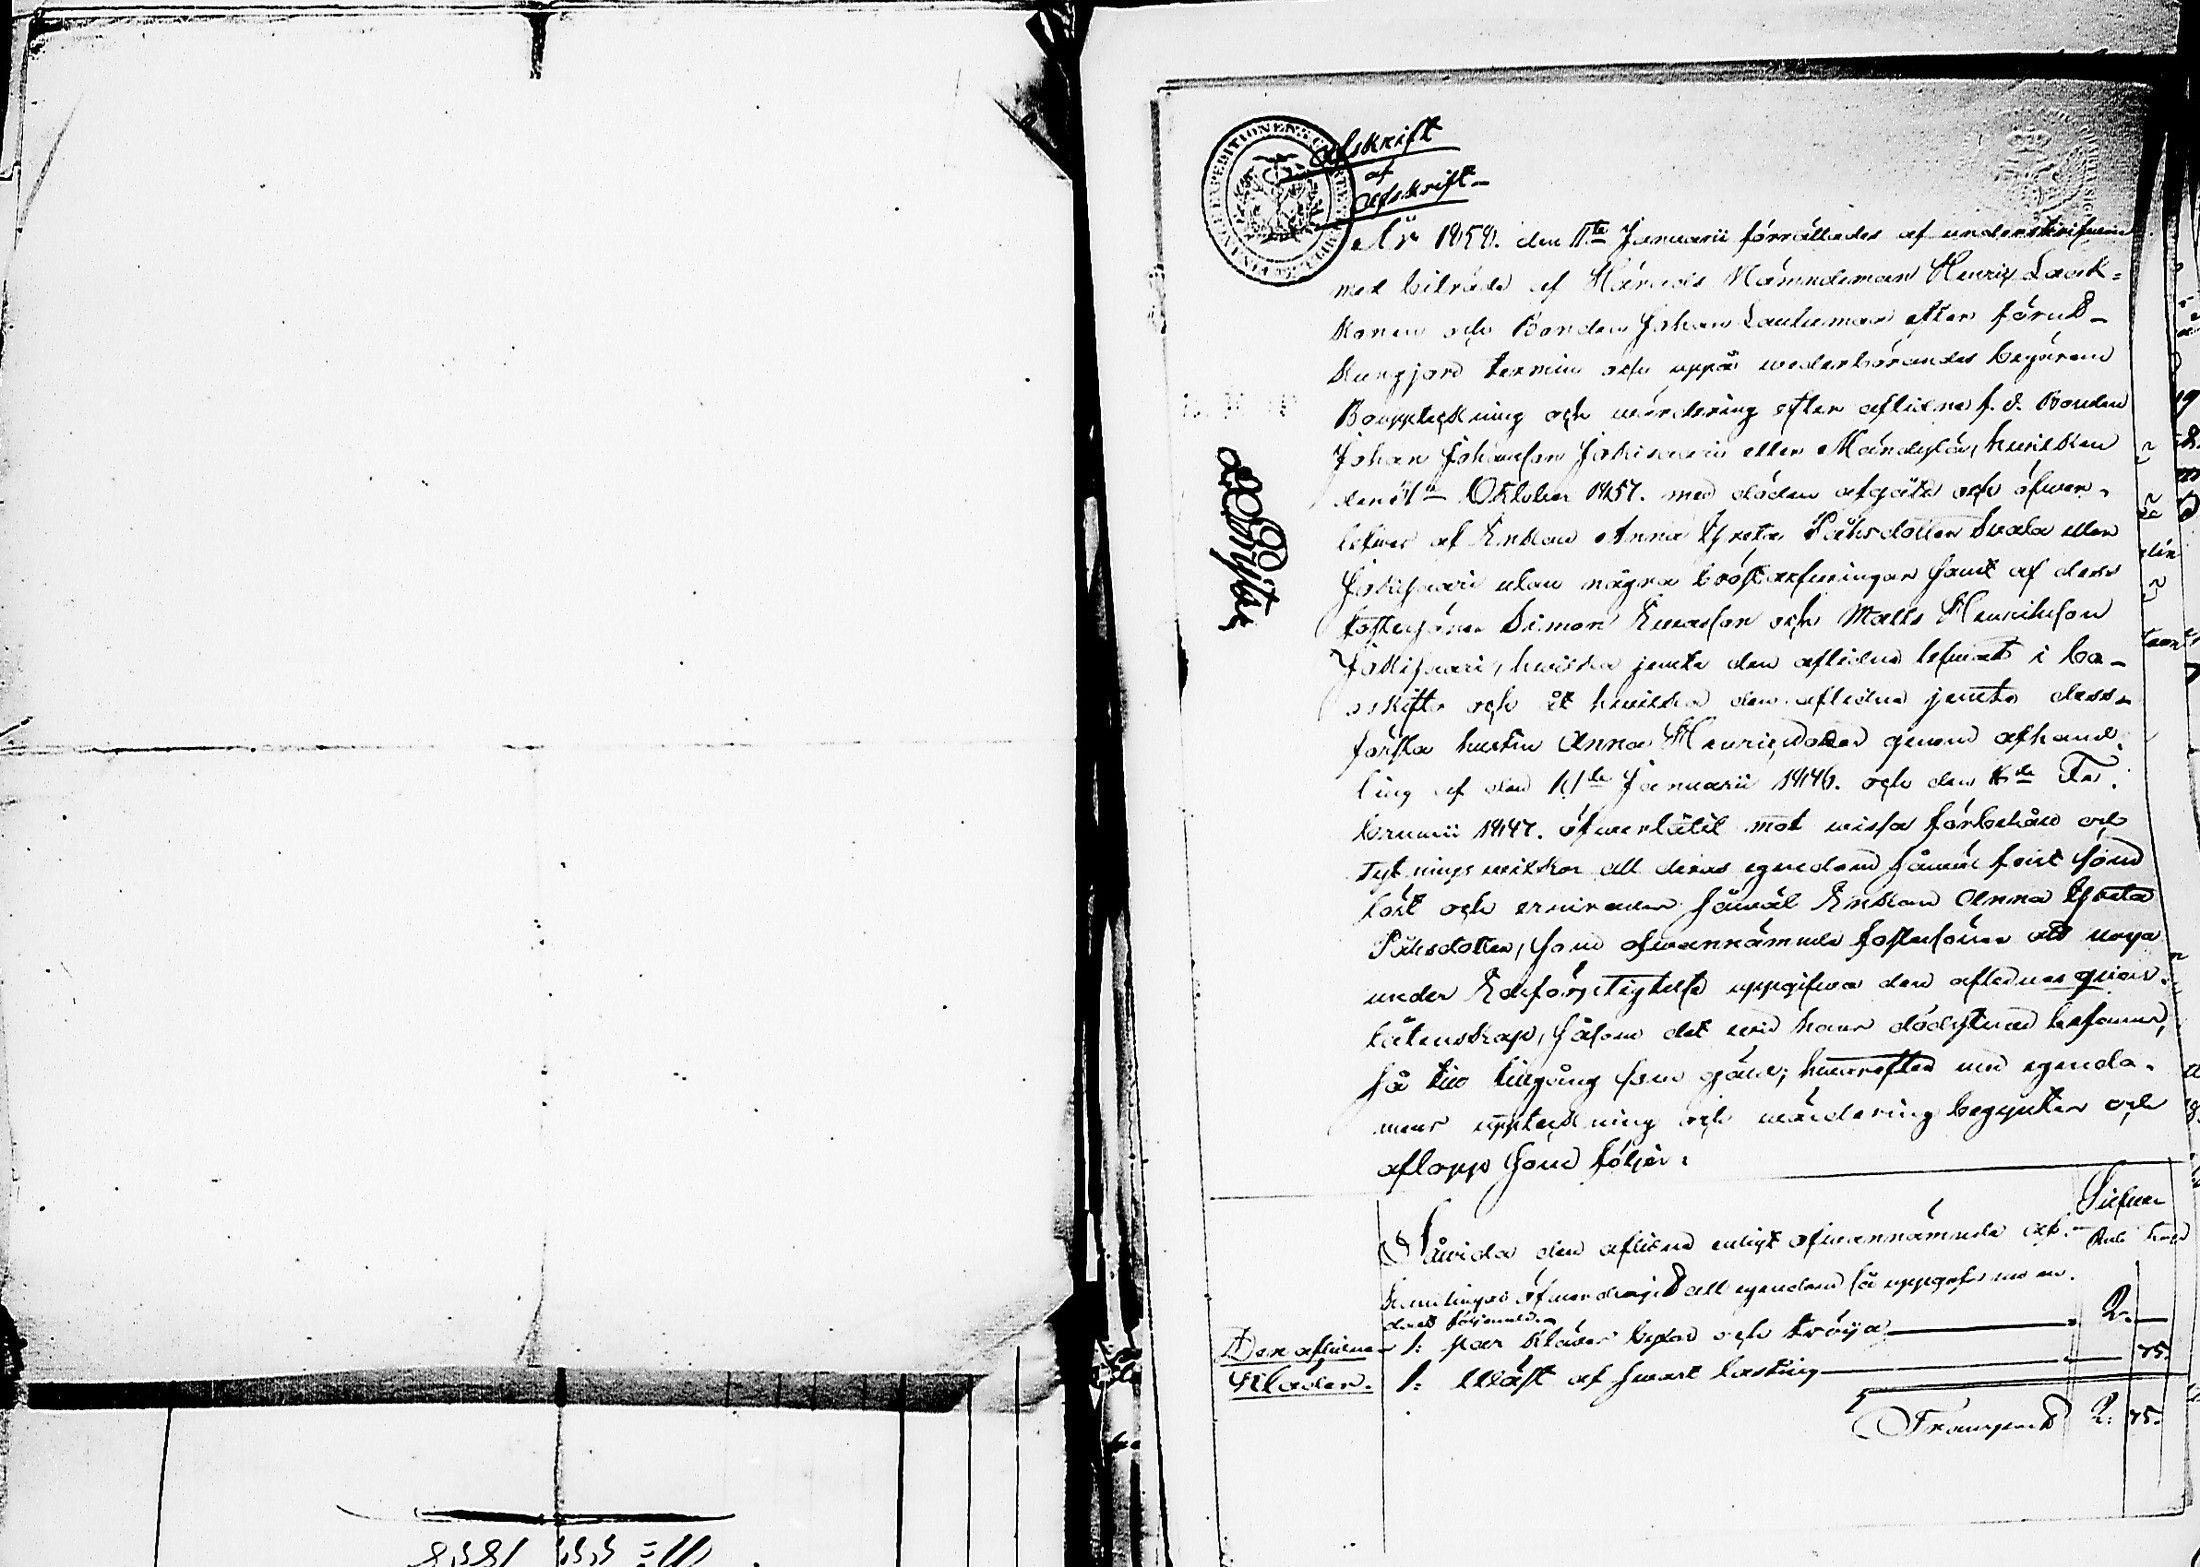 Afskrift
af
Afskrift
År 1858. den 11te Januarii förrättades af underskrifven
med biträde af Härads Nämndeman Henric Laak-
konen och Bonden Johan Lautuman efter förut-
kungjord termin och uppå wederbörandes begäran
Bouppteckning och wärdering efter aflidne f. d. Bonden
Johan Johansson Jakisaari eller Mändylä, hwilken
den Oktober 1857. med döden afgått och öfwer-
lefwes af Enkan Anna Greta Påhlsdotter eller
Jakisaari utan några bröstarfwingar samt af dess
fostersöner Simon och Matts Henriksson
Jakisaari, hwilka jemte den aflidne lefwat i bo-
skifte och åt hwilka den aflidne jemte dess
första hustru Anna Henricsdotter genom afhand-
ling af den Januarii 1846. och den Fe-
bruarii 1847. öfwerlåtit mot wissa förbehåll och
wilkor all deras egendom såwäl fast som
löst och Enkan Anna Greta
Påhlsdotter, som ofwannämnde fostersöner att noga
under Edsförpligtelse uppgifwa den aflidnes qwar-
låtenskap, såsom det wid hans dödstimma befanns,
så till tillgång som gäld; hwarefter med egendo-
mens uppteckning och wärdering begyntes och
aflopp som följer:
Silfwer
Såwida den aflidne enligt ofwannämnde af- Rub Kop
handlingar öfwerdragit all egendom så uppgafs nu en-
dast följande
Den aflidnes 1: par kläder byxor och tröja 2. —
Kläder. 1: Wäst af swart lasting — 75.
Transport 2: 75.